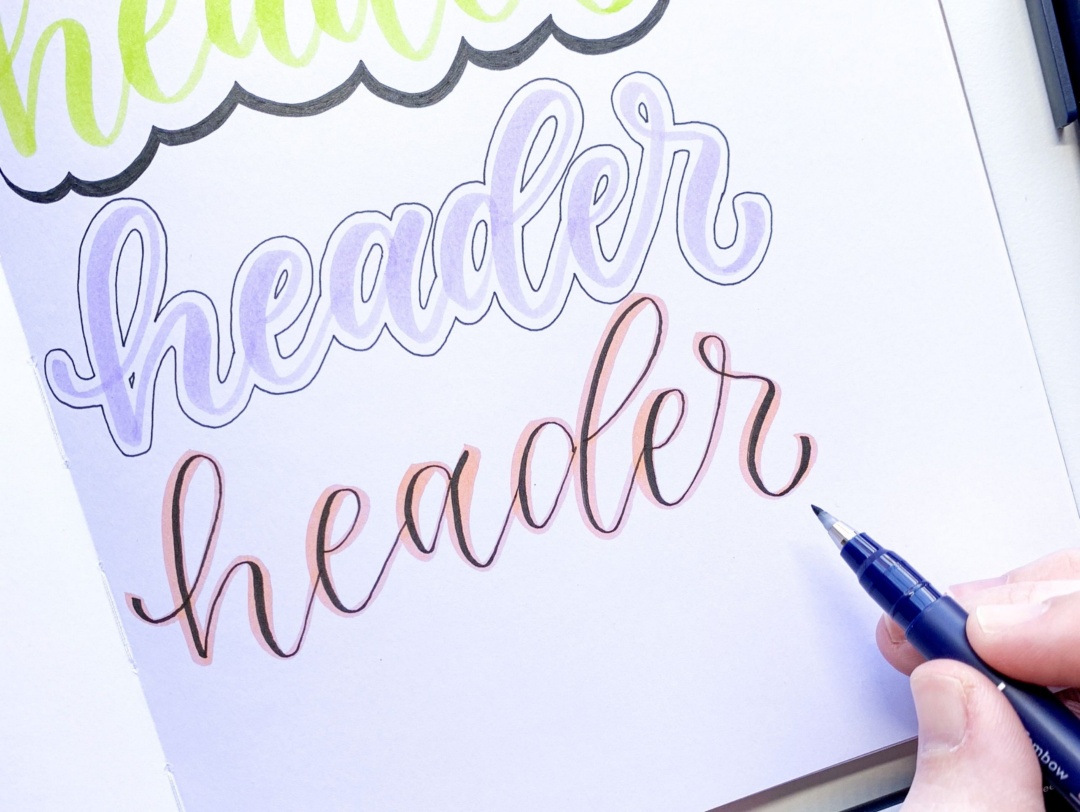 header
header
header
Tombow